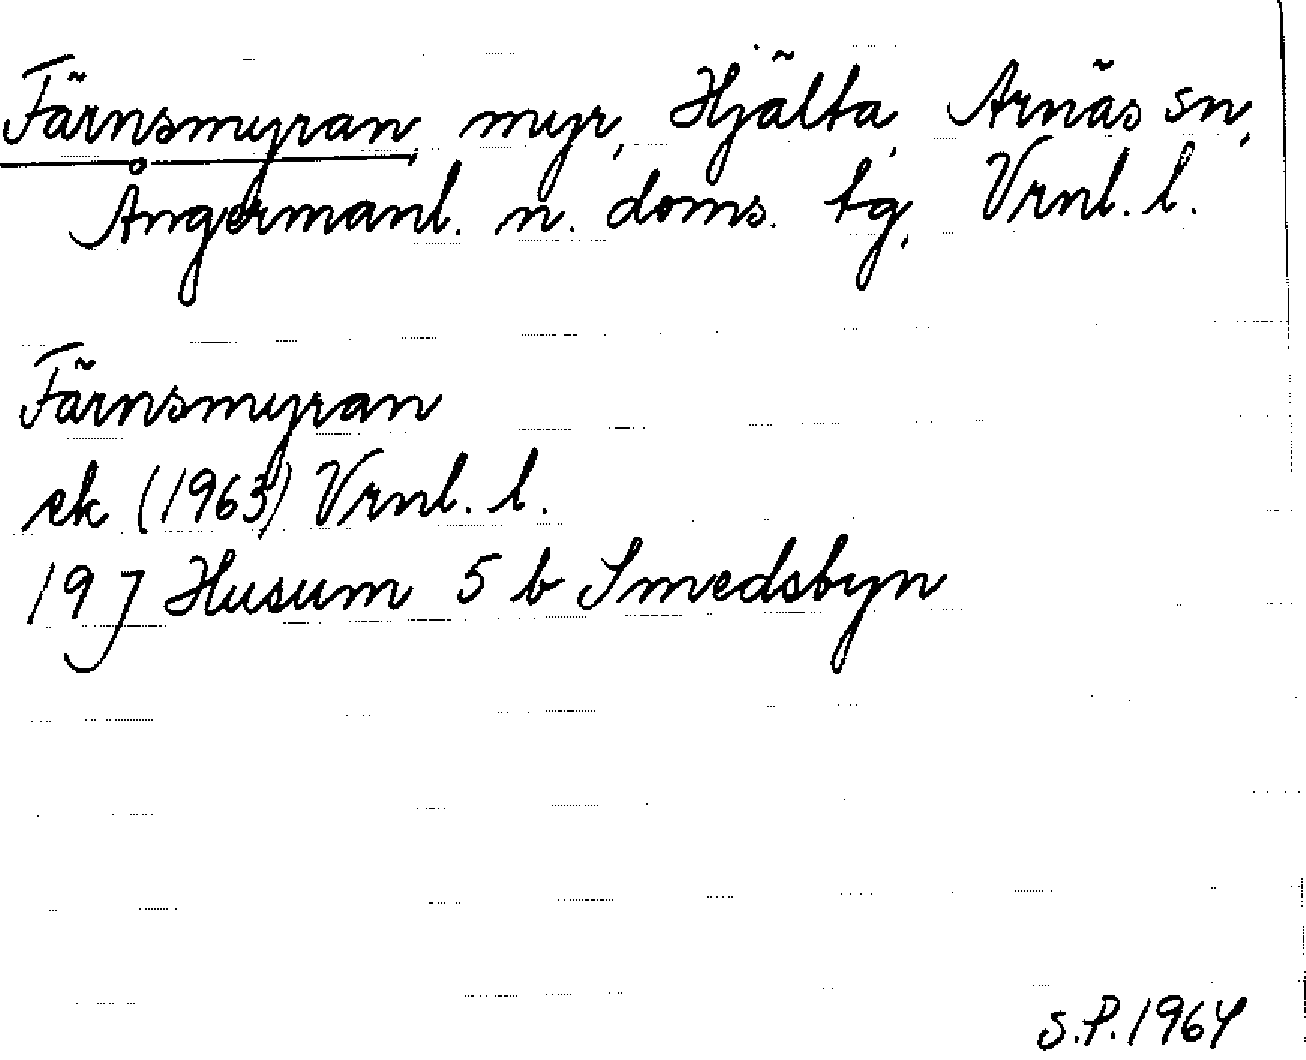 Färnsmyran, myr, Hjälta, Arnäs sn,
Ångermanl. n. doms. tg, Vrnl. l.
Färnsmyran
ek (1963) Vrnl. l.
19 J Husum 5 b Smedsbyn
S.P. 1964